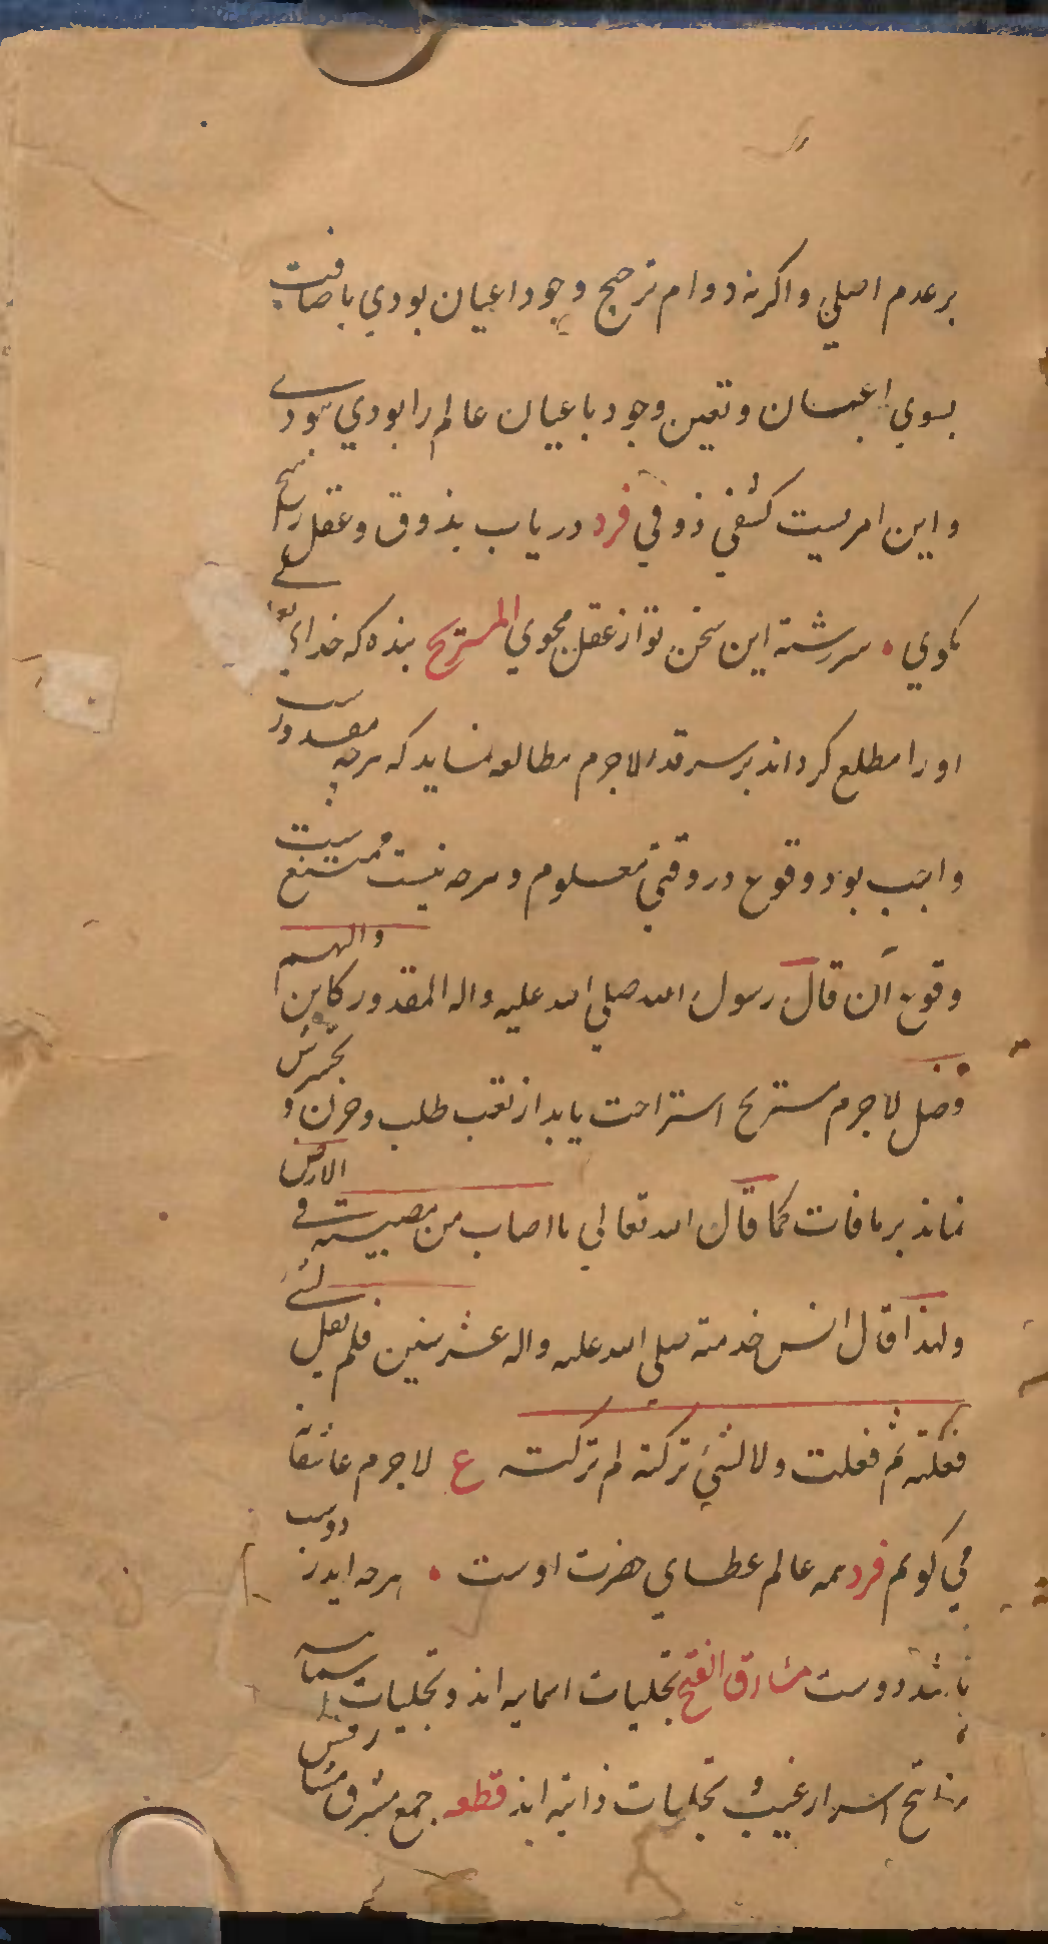 بر عدم اصلي و اگر نه دوام ترجيح وجود اعيان بودي باضافت
بسوي اعيان و تعين وجود باعيان عالم را بودي نبودي
و اين امريست كشفي ذوقي فرد درياب بذوق و عقل
بگوي سررشته اين سخن تو از عقل مجوي المستريح بنده كه خداي
او را مطلع گرداند بر سر قدر لاجرم مطالعه نمايد كه هرچه مقدورست
واجب بود وقوع در وقتي معلوم و هرچه نيست ممتنعست
وقوع آن قال رسول الله صلي الله عليه واله المقدور كاين والهم
فضل لاجرم مستريح استراحت يابد از تعب طلب و حزن و تحسر ش
نماند بر مافات كما قال الله تعالي ما اصاب من مصيبة في الارض
ولهذا قال انس خدمته صلي الله عليه واله عشر سنين فلم يقل لشئ
فعلته لم فعلت ولا لشئ تركته لم تركته ع لاجرم عاشقا
مي گويم فرد همه عالم عطاي حضرت اوست هرچه ايد ز دوست
باشد دوست مشارق الفتح تجليات اسمايه اند و تجليات اسمايه
مفاتح اسرار غيب و تجليات ذاتيه اند قطعه جمع مشرق مشارقش